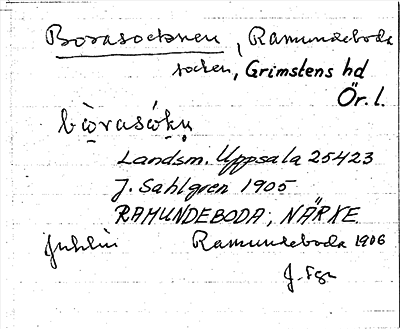 Borasocknen, Ramundeboda
socken, Grimstens hd
Ör. l.
bòrasókn
Landsm. Uppsala 25423
J. Sahlgren 1905
RAMUNDEBODA, NÄRKE
Ramundeboda 1906